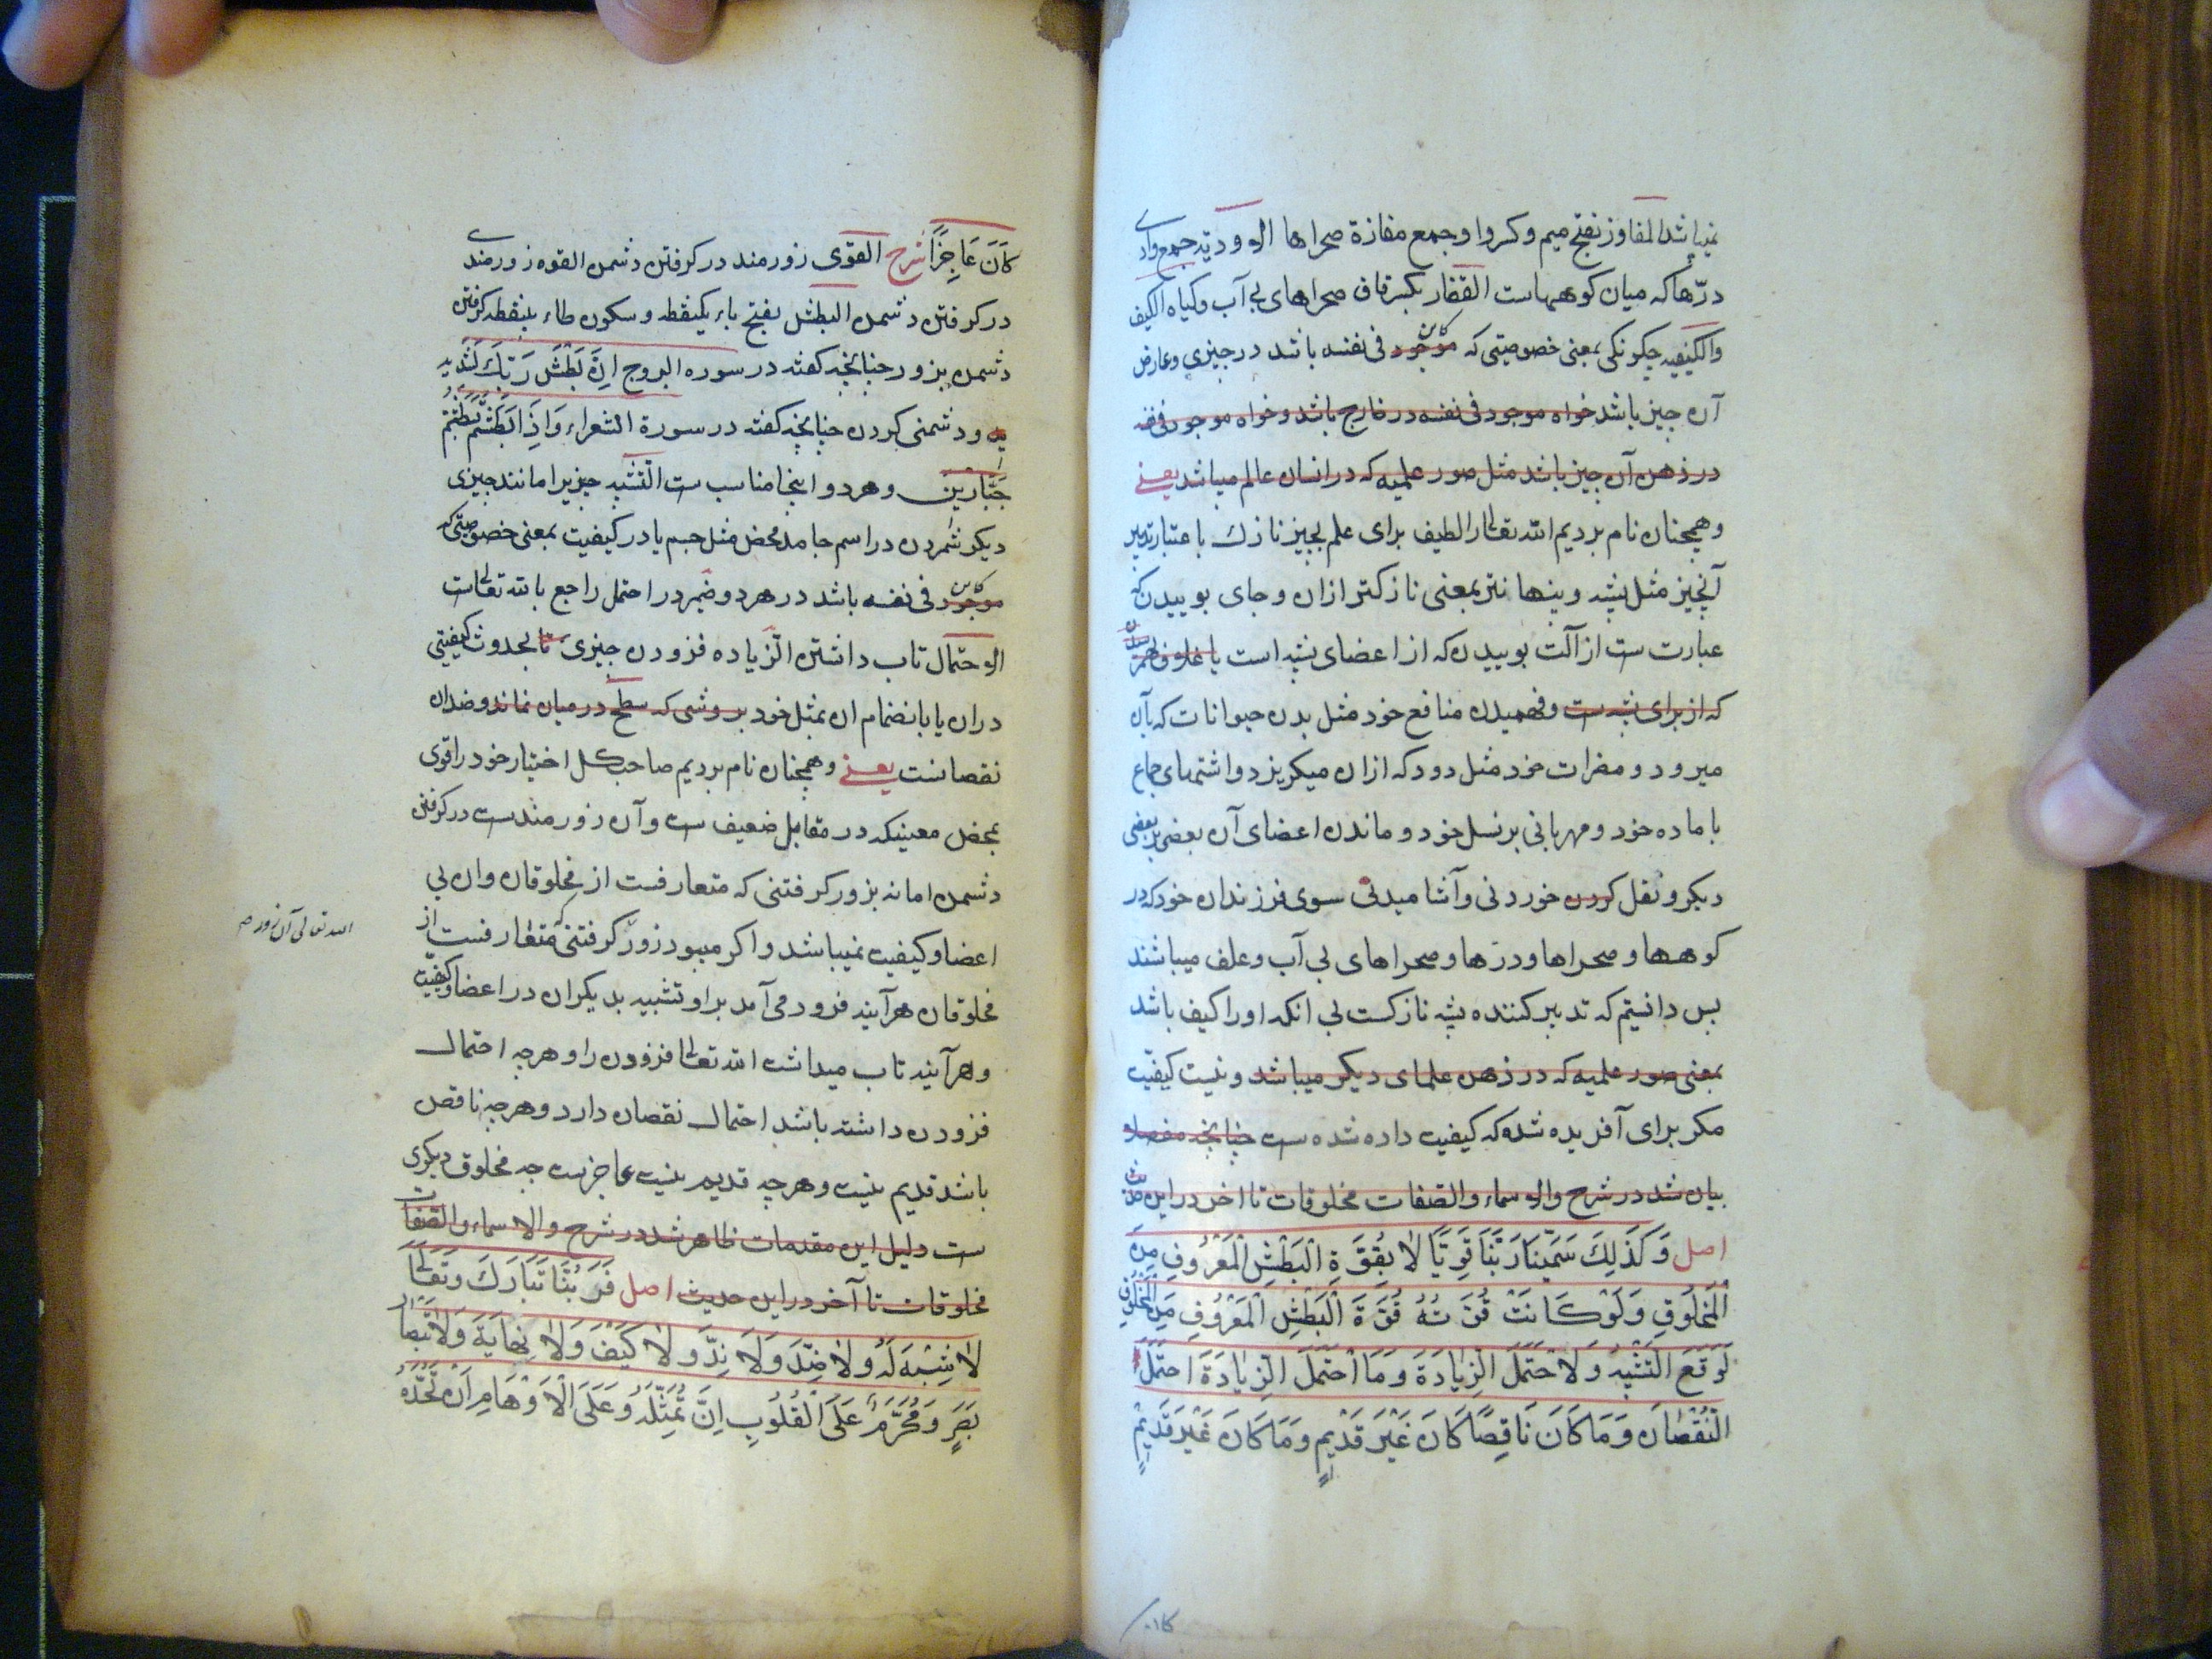 نمیباشد المفاوز بفتح میم و کسر واو جمع مفازة صحراها الاودیة جمع وادی
درّها که میان کوههاست القفار بکسر قاف صحراهای بی آب و کیاه الکیف
والکیفیه چکونکی بمعنی خصوصیتی که موجود کاین فی نفسه باشد در چیزی و عارض
آن چیز باشد خواه موجود فی نفسه در خارج باشد و خواه موجود فی نفسه
در ذهن آن چیز باشد مثل صور علمیه که در انسان عالم میباشد یعنی
و همچنان نام بردیم الله تعالی را لطیف برای علم بچیز نازک باعتبار تدبیر
آنچیز مثل پشه و پنهانتر بمعنی نازکتر ازان و جای بوییدن که
عبارت ست از آلت بوییدن که از اعضای پشه است یا
که از برای پشه ست و فهمیدن منافع خود مثل بدن حیوانات که بآن
میرود و مضرات خود مثل دود که ازان میکریزد و اشتهای جماع
با ماده خود و مهربانی بر نسل خود و ماندن اعضای آن بعضی بر بعضی
دیکر و نقل کردن خوردنی و آشامیدنی سوی فرزندان خود که در
کوهها و صحراها و درّها و صحراهای بی آب و علف میباشند
پس دانستیم که تدبیر کننده پشه نازکست بی انکه او را کیف باشد
بمعنی صور علمیه که در ذهن علمای دیکر میباشد و نیست کیفیّت
مکر برای آفریده شده که کیفیت داده شده ست چنانچه مفصلا
بیان شد در شرح والاسماء والصفات مخلوقات تا اخر در این حدیث
اصل وَ کَذَلِکَ سَمَّیْنَا رَبَّنَا قَوِیًّا لَا بِقُوَّةِ الْبَطْشِ الْمَعْرُوفِ مِنَ
الْمَخْلُوقِ وَ لَوْ کَانَتْ قُوَّتُهُ قُوَّةَ الْبَطْشِ الْمَعْرُوفِ مِنَ الْمَخْلُوقِ
لَوَقَعَ التَّشْبِیهُ وَ لَاحْتَمَلَ الزِّیَادَةَ وَ مَا احْتَمَلَ الزِّیَادَةَ احْتَمَلَ
النُّقْصَانَ وَ مَا کَانَ نَاقِصًا کَانَ غَیْرَ قَدِیمٍ وَ مَا کَانَ غَیْرَ قَدِیمٍ
کَانَ عَاجِزًا شرح القوی زورمند در کرفتن دشمن القوه زورمندی
در کرفتن دشمن البطش بفتح باء یکنقطه و سکون طاء بینقطه کرفتن
دشمن بزور چنانچه کفته در سوره البروج اِنَّ بَطْشَ رَبِّکَ لَشَدِید
و دشمنی کردن چنانچه کفته در سورة الشعراء وَ اِذَا بَطَشْتُمْ بَطَشْتُمْ
جَبَّارِینَ و هر دو اینجا مناسب ست التشبیه چیزیرا مانند چیزی
دیکر شمردن در اسم جامد محض مثل جسم یا در کیفیت بمعنی خصوصیتی که
موجود کاین فی نفسه باشد در هر دو ضمیر در احتمل راجع بالله تعالی است
الاحتمال تاب داشتن الزیاده فزودن چیزی تا بحدوث کیفیتی
در ان یا بانضمام ان بمثل خود بروشی که سطح در میان نماند و ضد ان
نقصانست یعنی و همچنان نام بردیم صاحب کل اختیار خود را قوی
بمحض معنییکه در مقابل ضعیف ست و آن زورمندست در کرفتن
دشمن اما نه بزور کرفتنی که متعارفست از مخلوقان و ان بی
اعضا و کیفیت نمیباشد و اکر میبود زور کرفتنی که متعارفست از
مخلوقان هرآینه فرود می آمد بر او تشبیه بدیکران در اعضا و کیفیت
و هرآینه تاب میداشت الله تعالی فزودن را و هرچه احتمال
فزودن داشته باشد احتمال نقصان دارد و هرچه ناقص
باشد قدیم نیست و هرچه قدیم نیست عاجز ست چه مخلوق دیکری
ست دلیل این مقدمات ظاهر شد در شرح والاسماء والصفات
مخلوقات تا آخر در این حدیث اصل فَرَبُّنَا تَبَارَکَ وَ تَعَالَی
لَا شِبْهَ لَهُ وَ لَا ضِدَّ وَ لَا نِدَّ وَ لَا کَیْفَ وَ لَا نِهَایَةَ وَ لَا تَبْصَارَ
بَصَرٍ وَ مُحَرَّمٌ عَلَی الْقُلُوبِ اَنْ تُمَثِّلَهُ وَ عَلَی الْاَوْهَامِ اَنْ تَحُدَّهُ
الله تعالی آن زور
کان